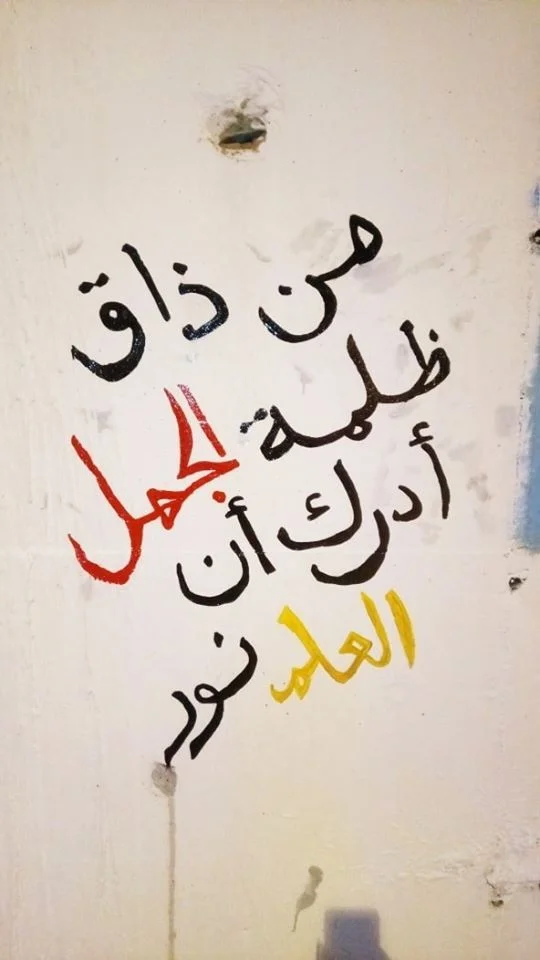 من ذاق
ظلمة الجهل
أدرك أن
العلم نور